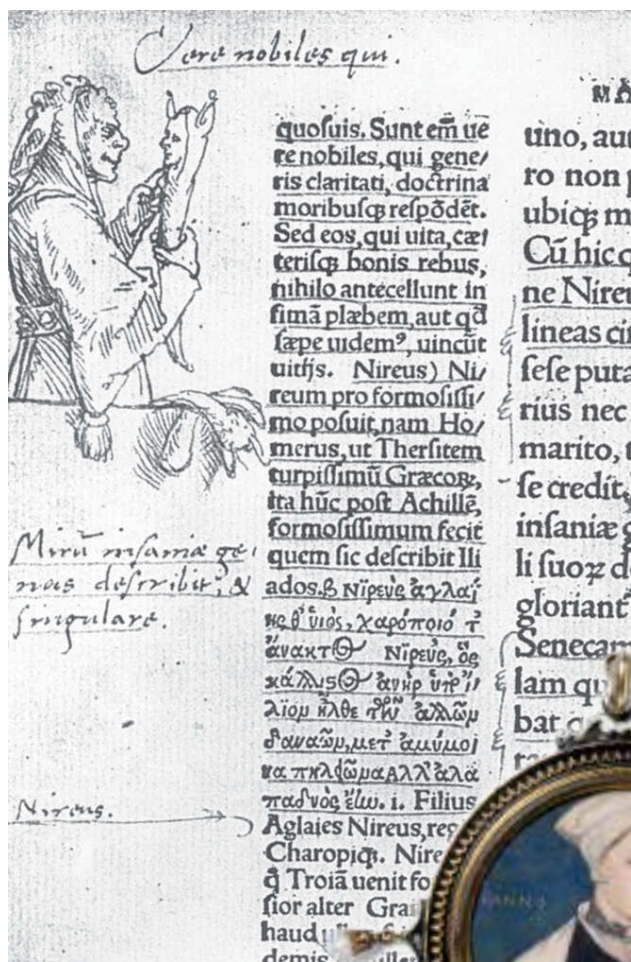 Vere nobiles qui.
MA
quoſuis. Sunt em̄ ue
re nobiles, qui gene/
ris claritati, doctrina
moribuſqꝫ reſpõdẽt.
Sed eos, qui uita, cæ/
teriſqꝫ bonis rebus,
nihilo antecellunt in
fimã plæbem, aut qd̄
ſæpe uidemꝰ, uincũt
uitijs. Nireus) Ni/
reum pro formoſiſſi/
mo poſuit, nam Ho/
merus, ut Therſitem
turpiſſimũ Græcoꝝ,
ita hũc poſt Achillẽ,
formoſiſſimum fecit
quem ſic deſcribit Ili
ados.β Νῖρεὺς ἀγλαΐ
ης θ' ὑιὸς, χαρόποιό τ'
ἄνακτος Νῖρεὺς, ὃς
κάλλιστος ἀνὴρ ὑπὸ ἴ/
λιον ἦλθε τῶν ἄλλων
δαναῶν, μετ' ἀμύμοι
να πηλείωνα Αλλ' ἀλα
παδνὸς ἔην. i. Filius
Aglaies Nireus, reg
Charopiqꝫ. Nire
q̃ Troiã uenit fo
ſior alter Grai
haud
demis
Mirũ inſaniæ ge/
nus deſcribit, &
ſingulare.
Nireus.
uno, aut
ro non p
ubiqꝫ m
Cũ hic q
ne Nireu
lineas cir
ſeſe puta
rius nec
marito, t
ſe credit,
inſaniæ g
li ſuoꝝ de
gloriant
Senecam
lam qu
bat
ANNO